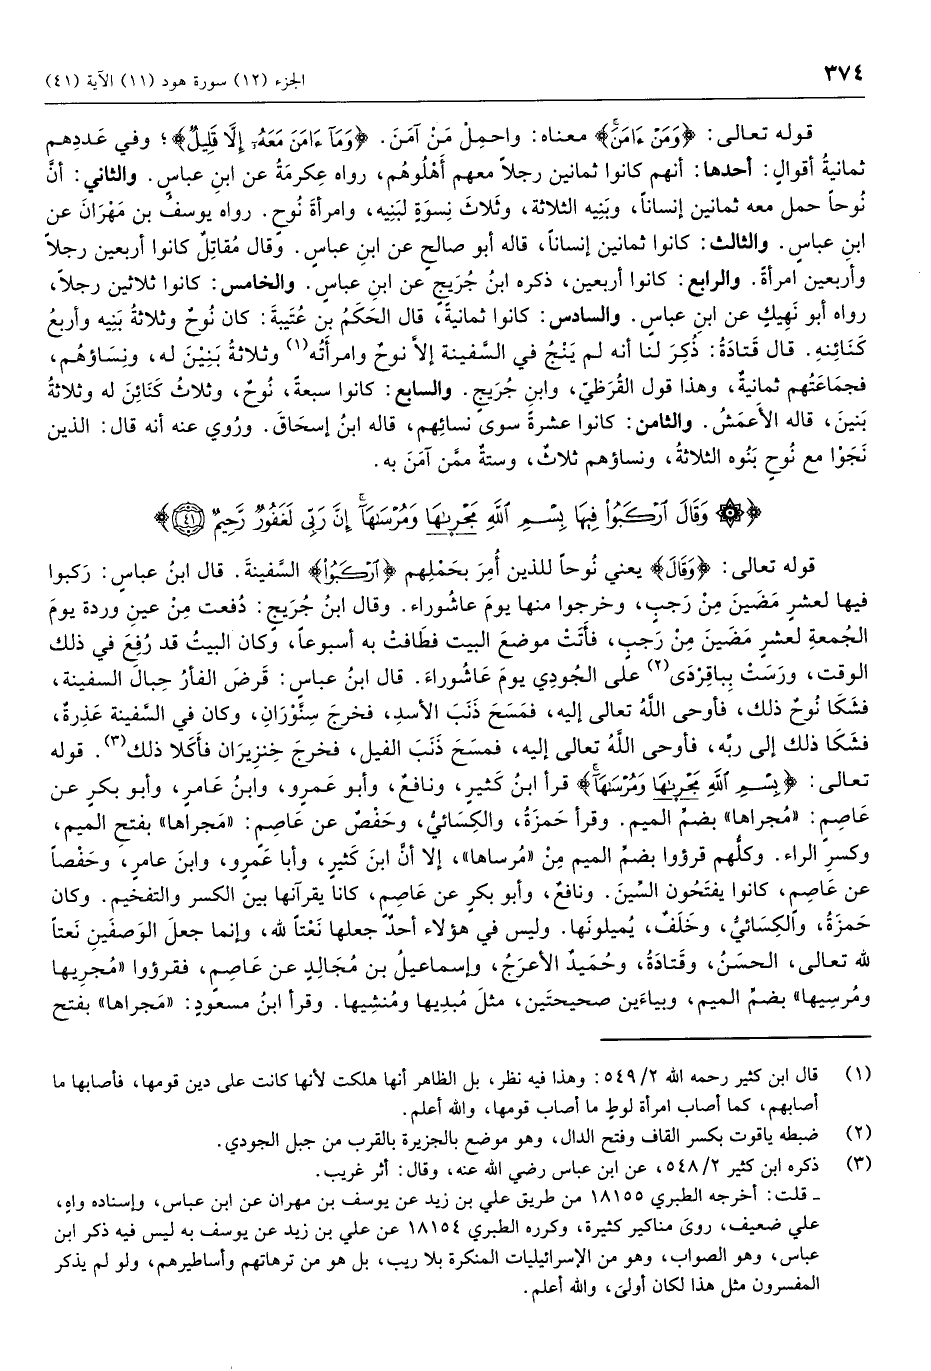 ٣٧٤
الجزء (١٢) سورة هود (١١) الآية (٤١)
قوله تعالى: ﴿وَمَنْ ءَامَنَۚ﴾ معناه: واحمِلْ مَنْ آمَنَ. ﴿وَمَآ ءَامَنَ مَعَهُۥٓ إِلَّا قَلِيلٌ﴾؛ وفي عَددِهم
ثمانيةُ أقوالٍ: أحدها: أنهم كانوا ثمانين رجلاً معهم أَهْلُوهُم، رواه عِكرمَةُ عن ابنِ عباس. والثاني: أنَّ
نُوحاً حمل معه ثمانين إنساناً، وبَنِيه الثلاثة، وثَلاثَ نِسوَةٍ لبَنِيه، وامرأةَ نُوح. رواه يوسفُ بن مَهْرَانَ عن
ابنِ عباس. والثالث: كانوا ثمانين إنساناً، قاله أبو صالحٍ عن ابنِ عباس. وقال مُقاتِلٌ كانوا أربعين رجلاً
وأربعين امرأةً. والرابع: كانوا أربعين، ذكره ابنُ جُرَيجٍ عن ابنِ عباس. والخامس: كانوا ثلاثين رجلاً،
رواه أبو نَهِيكٍ عن ابنِ عباس. والسادس: كانوا ثمانيةً، قال الحَكَمُ بن عُتَيبةَ: كان نُوحٌ وثلاثةُ بَنِيه وأربعُ
كَنَائِنِهِ. قال قَتَادَةُ: ذُكِرَ لنا أنه لم يَنْجُ في السَّفينة إلاَّ نوحٌ وامرأتُه(١) وثلاثةُ بَنِيْنَ له، ونِسَاؤهُم،
فجمَاعَتُهم ثمانيةٌ، وهذا قول القُرَظيِّ، وابنِ جُرَيجٍ. والسابع: كانوا سبعةً، نُوحٌ، وثلاثُ كَنَائِنَ له وثلاثةُ
بَنينَ، قاله الأعمَشُ. والثامن: كانوا عشرةً سوى نسائِهم، قاله ابنُ إسحَاقَ. ورُوي عنه أنه قال: الذين
نَجَوْا مع نُوحٍ بَنُوه الثلاثةُ، ونساؤهم ثلاثٌ، وستةٌ ممَّن آمَنَ به.
﴿۞ وَقَالَ ٱرْكَبُوا۟ فِيهَا بِسْمِ ٱللَّهِ مَجْر۪ىٰهَا وَمُرْسَىٰهَآۚ إِنَّ رَبِّى لَغَفُورٌ رَّحِيمٌ ٤١﴾
قوله تعالى: ﴿وَقَالَ﴾ يعني نُوحاً للذين أُمِرَ بحَمْلِهم ﴿ٱرْكَبُوا۟﴾ السَّفينةَ. قال ابنُ عباسٍ: رَكبوا
فيها لعشرٍ مَضَينَ مِنْ رَجبٍ، وخرجوا منها يومَ عاشُوراء. وقال ابنُ جُرَيجٍ: دُفعت مِنْ عينِ وردة يومَ
الجُمعةِ لعشرٍ مَضَينَ مِنْ رَجب، فأَتَتْ موضعَ البيت فطَافتْ به أسبوعاً، وكان البيتُ قد رُفِعَ في ذلك
الوقت، ورَسَتْ بِباقِرْدَى(٢) على الجُودِي يومَ عَاشُوراءَ. قال ابنُ عباس: قَرضَ الفأرُ حِبالَ السفينة،
فشَكَا نُوحٌ ذلك، فأوحى اللَّهُ تعالى إليه، فمَسَحَ ذَنَبَ الأسدِ، فخرجَ سِنَّوْرَانِ، وكان في السَّفينة عَذِرةٌ،
فشَكَا ذلك إلى ربِّه، فأوحى اللَّهُ تعالى إليه، فمسَحَ ذَنَبَ الفيل، فخرجَ خنزِيرَان فأَكَلا ذلك(٣). قوله
تعالى: ﴿بِسْمِ ٱللَّهِ مَجْر۪ىٰهَا وَمُرْسَىٰهَآۚ﴾ قرأ ابنُ كَثيرٍ، ونافعٌ، وأبو عَمرٍو، وابنُ عَامرٍ، وأبو بكرٍ عن
عَاصِمٍ: «مُجراها» بضمِّ الميم. وقرأ حَمزَةُ، والكِسَائيُّ، وحَفْصٌ عن عَاصِمٍ: «مَجراها» بفتح الميم،
وكسرِ الراء. وكلُّهم قرؤوا بضمِّ الميم مِنْ «مُرساها»، إلا أنَّ ابنَ كَثيرٍ، وأبا عَمْرٍو، وابنَ عامرٍ، وحَفْصاً
عن عَاصِمٍ، كانوا يفتَحُون السِّينَ. ونافعٌ، وأبو بكر عن عَاصِمٍ، كانا يقرآنها بين الكسر والتفخيم. وكان
حَمزَةُ، والكِسَائيُّ، وخَلَفٌ، يُميلونَها. وليس في هؤلاء أحدٌ جعلها نَعْتاً لله، وإنما جعلَ الوَصفَينِ نَعتاً
لله تعالى، الحسَنُ، وقَتادَةُ، وحُمَيدٌ الأعرَجُ، وإسماعيلُ بن مُجَالِدٍ عن عَاصِمٍ، فقرؤوا «مُجرِيها
ومُرسِيها» بضمِّ الميم، وبياءَين صحيحتَين، مثلَ مُبدِيها ومُنشِيها. وقرأ ابنُ مسعُودٍ: «مَجراها» بفتح
(١) قال ابن كثير رحمه الله ٥٤٩/٢: وهذا فيه نظر، بل الظاهر أنها هلكت لأنها كانت على دين قومها، فأصابها ما
أصابهم، كما أصاب امرأة لوطٍ ما أصاب قومها، والله أعلم.
(٢) ضبطه ياقوت بكسر القاف وفتح الدال، وهو موضع بالجزيرة بالقرب من جبل الجودي.
(٣) ذكره ابن كثير ٥٤٨/٢، عن ابن عباس رضي الله عنه، وقال: أثر غريب.
ـ قلت: أخرجه الطبري ١٨١٥٥ من طريق علي بن زيد عن يوسف بن مهران عن ابن عباس، وإسناده واهٍ،
علي ضعيف، روىَ مناكير كثيرة، وكرره الطبري ١٨١٥٤ عن علي بن زيد عن يوسف به ليس فيه ذكر ابن
عباس، وهو الصواب، وهو من الإسرائيليات المنكرة بلا ريب، بل هو من ترهاتهم وأساطيرهم، ولو لم يذكر
المفسرون مثل هذا لكان أولىَ، والله أعلم.